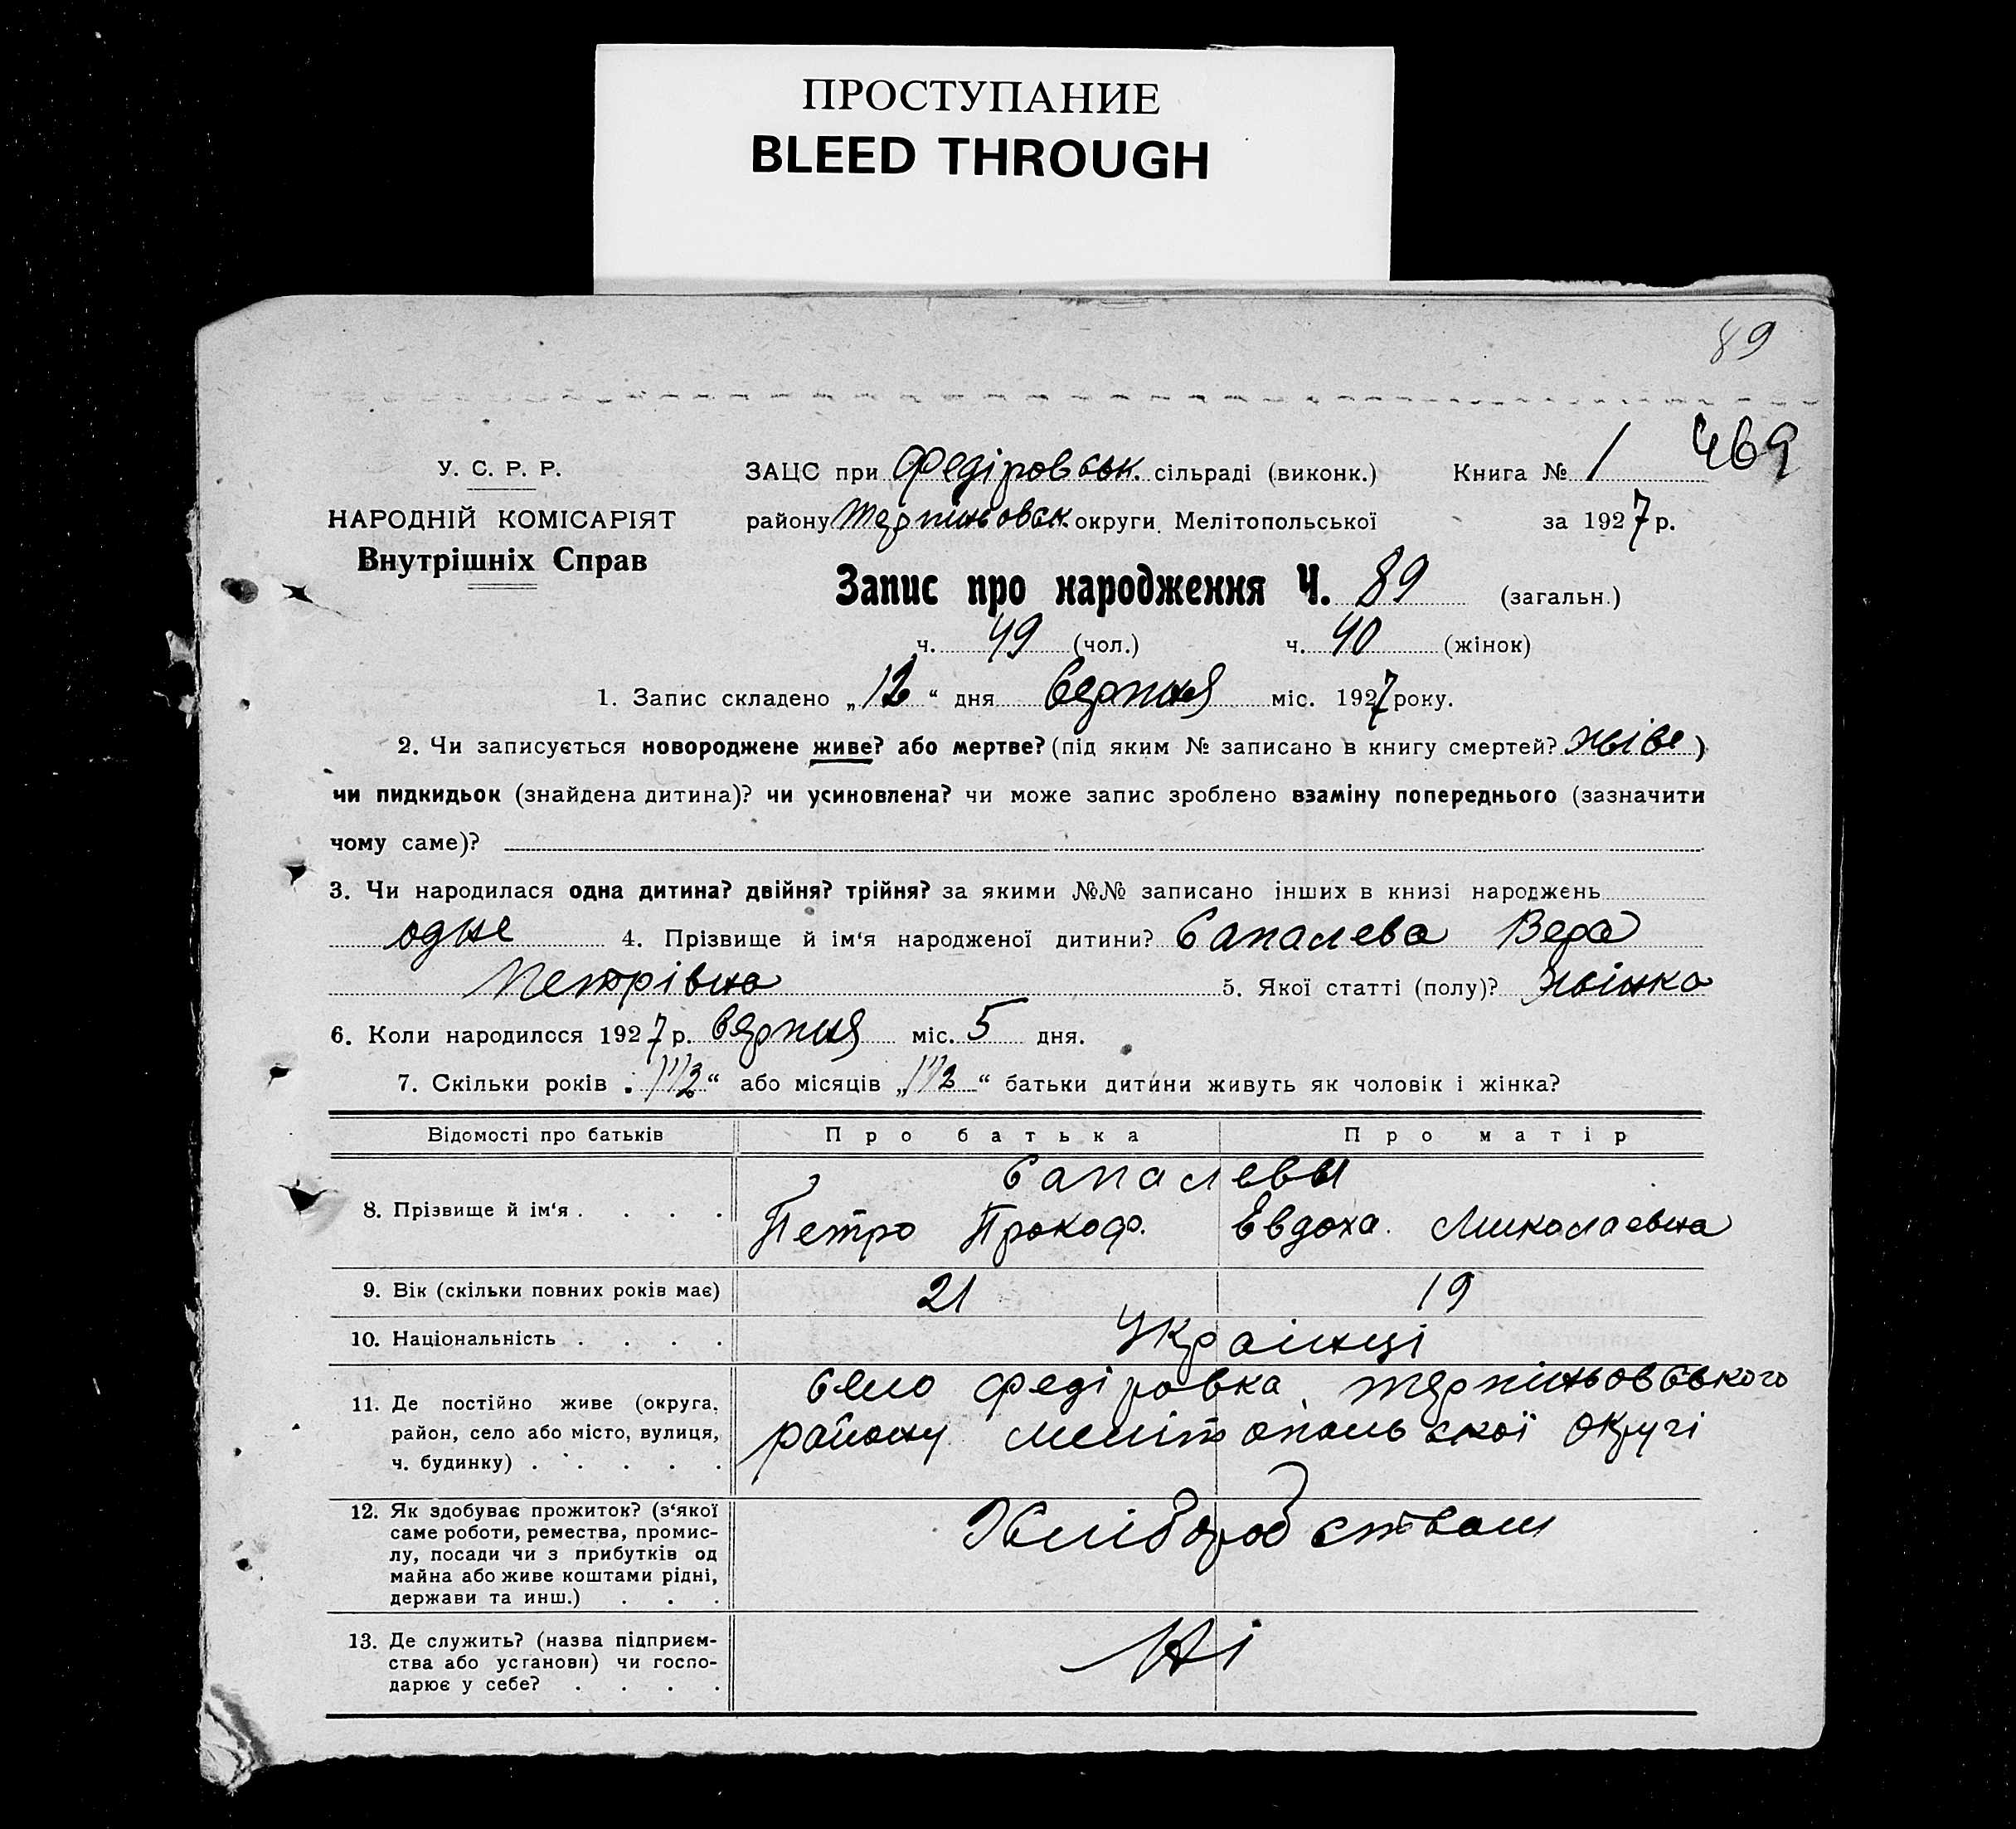 ПРОСТУПАНИЕ
BLEED THROUGH
89
469
У. С. Р. Р.
НАРОДНІЙ КОМІСАРІЯТ
Внутрішніх Справ
ЗАЦС при Федіровськ. сільраді (виконк.) Книга № 1
району Терпіньовськ округи Мелітопольської за 1927 р.
Запис про народження Ч. 89 (загальн.)
ч. 49 (чол.) ч. 40 (жінок)
1. Запис складено „12“ дня серпня міс. 1927 року.
2. Чи записується новороджене живе? або мертве? (під яким № записано в книгу смертей? живе)
чи пидкидьок (знайдена дитина)? чи усиновлена? чи може запис зроблено взаміну попереднього (зазначити
чому саме)?
3. Чи народилася одна дитина? двійня? трійня? за якими №№ записано інших в книзі народжень
одне 4. Прізвище й ім‘я народженої дитини? Сапалева Вера
Петрівна 5. Якої статті (полу)? жінка
6. Коли народилося 1927 р. серпня міс. 5 дня.
7. Скільки років „1 1/2“ або місяців „1 1/2“ батьки дитини живуть як чоловік і жінка?
Відомості про батьків Про батька Про матір
8. Прізвище й ім‘я . . . .
Сапалевы
Петро Прокоф. Евдоха Миколаевна
9. Вік (скільки повних років має) 21 19
10. Національність . . . . Украінці
11. Де постійно живе (округа,
район, село або місто, вулиця,
ч. будинку) . . . . .
Село Федіровка, Терпіньовського
району Мелітопольської округі
12. Як здобуває прожиток? (з‘якої
саме роботи, ремества, промис-
лу, посади чи з прибутків од
майна або живе коштами рідні,
держави та инш.) . . .
Хліборобством
13. Де служить? (назва підприєм-
ства або установи) чи госпо-
дарює у себе? . . . .
Ні